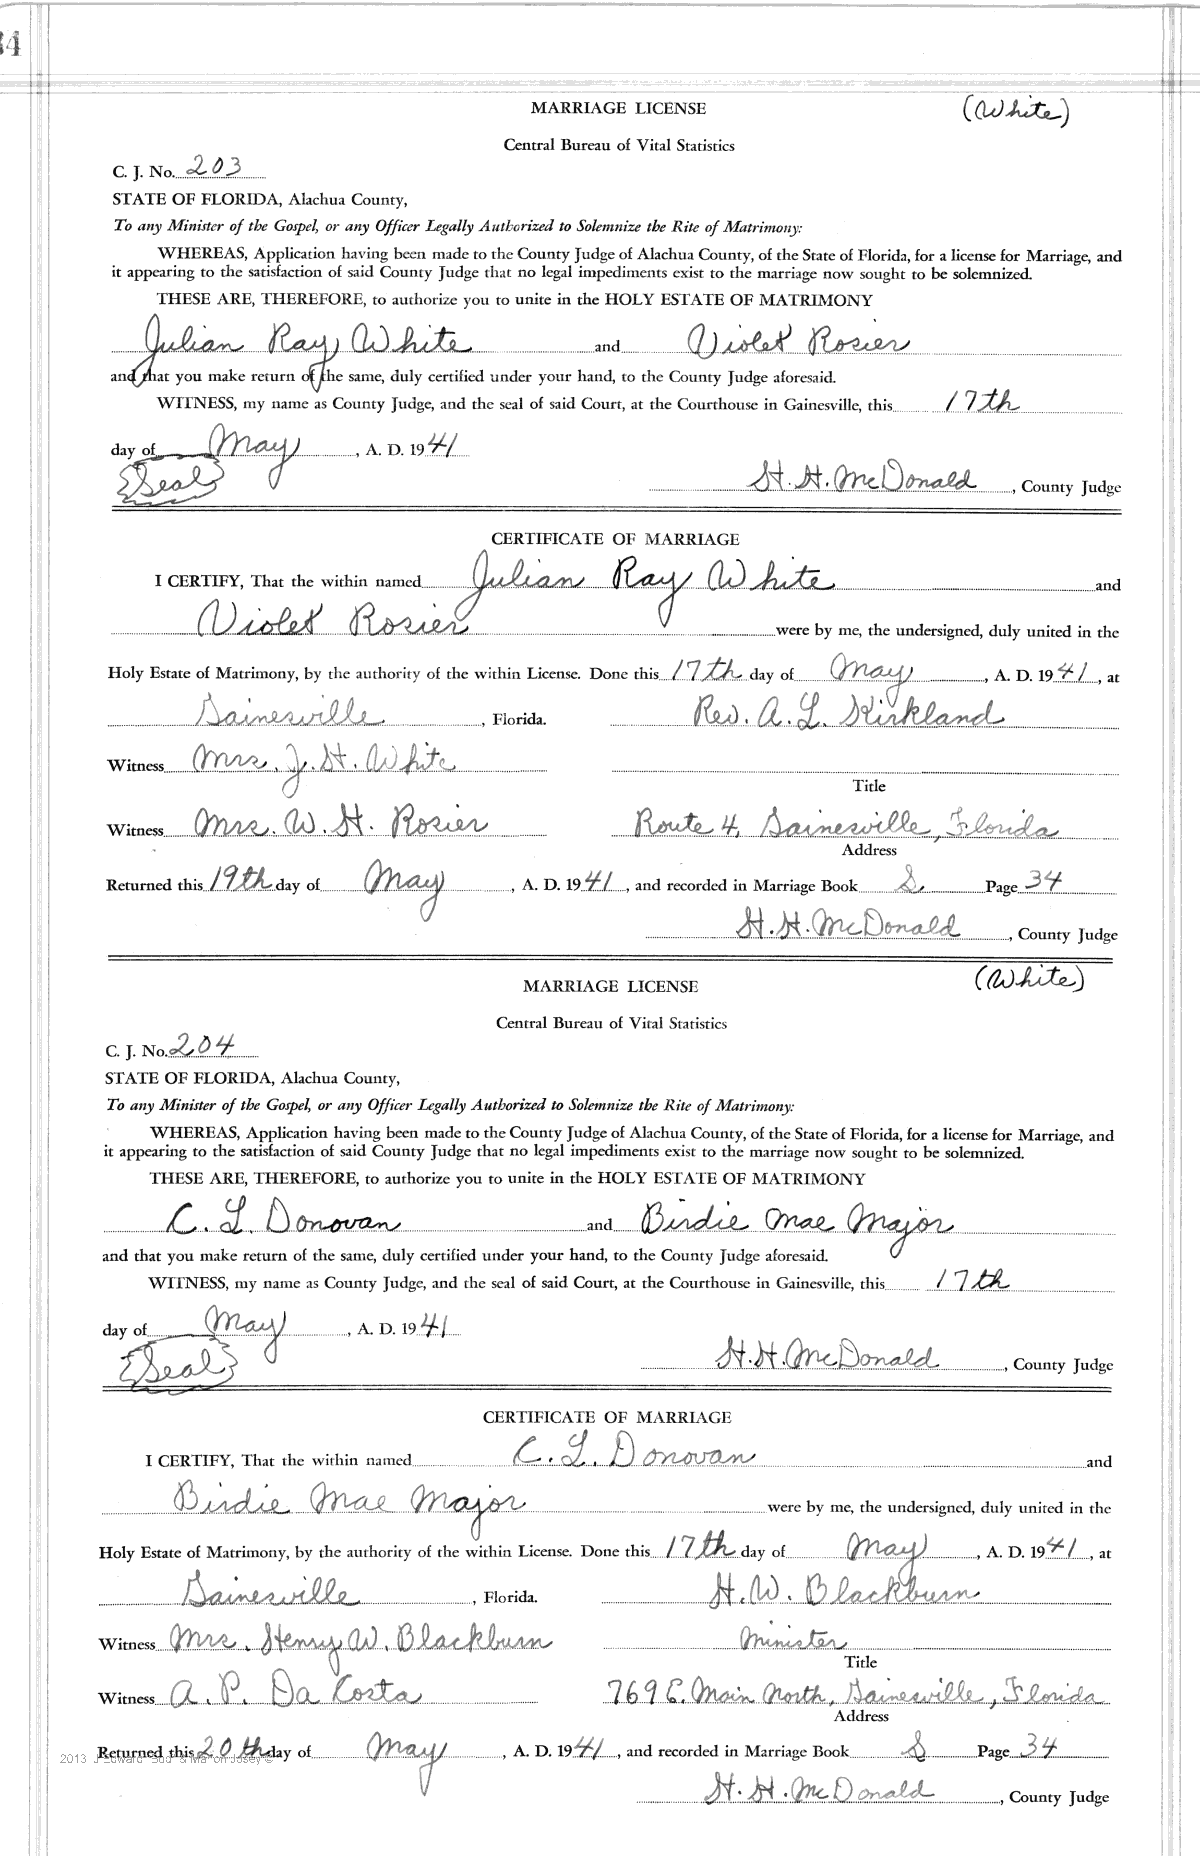 34
MARRIAGE LICENSE (White)
Central Bureau of Vital Statistics
C. J. No. 203
STATE OF FLORIDA, Alachua County,
To any Minister of the Gospel, or any Officer Legally Authorized to Solemnize the Rite of Matrimony:
WHEREAS, Application having been made to the County Judge of Alachua County, of the State of Florida, for a license for Marriage, and
it appearing to the satisfaction of said County Judge that no legal impediments exist to the marriage now sought to be solemnized.
THESE ARE, THEREFORE, to authorize you to unite in the HOLY ESTATE OF MATRIMONY
Julian Ray White and Violet Rosier
and that you make return of the same, duly certified under your hand, to the County Judge aforesaid.
WITNESS, my name as County Judge, and the seal of said Court, at the Courthouse in Gainesville, this 17th
day of May, A. D. 1941
{Seal} H. H. McDonald, County Judge
CERTIFICATE OF MARRIAGE
I CERTIFY, That the within named Julian Ray White and
Violet Rosier were by me, the undersigned, duly united in the
Holy Estate of Matrimony, by the authority of the within License. Done this 17th day of May, A. D. 1941, at
Gainesville, Florida. Rev. A. L. Kirkland
Witness Mrs. J. H. White
Title
Witness Mrs. W. H. Rosier Route 4, Gainesville, Florida
Address
Returned this 19th day of May, A. D. 1941, and recorded in Marriage Book S Page 34
H. H. McDonald, County Judge
MARRIAGE LICENSE (White)
Central Bureau of Vital Statistics
C. J. No. 204
STATE OF FLORIDA, Alachua County,
To any Minister of the Gospel, or any Officer Legally Authorized to Solemnize the Rite of Matrimony:
WHEREAS, Application having been made to the County Judge of Alachua County, of the State of Florida, for a license for Marriage, and
it appearing to the satisfaction of said County Judge that no legal impediments exist to the marriage now sought to be solemnized.
THESE ARE, THEREFORE, to authorize you to unite in the HOLY ESTATE OF MATRIMONY
C. L. Donovan and Birdie Mae Major
and that you make return of the same, duly certified under your hand, to the County Judge aforesaid.
WITNESS, my name as County Judge, and the seal of said Court, at the Courthouse in Gainesville, this 17th
day of May, A. D. 1941
{Seal} H. H. McDonald, County Judge
CERTIFICATE OF MARRIAGE
I CERTIFY, That the within named C. L. Donovan and
Birdie Mae Major were by me, the undersigned, duly united in the
Holy Estate of Matrimony, by the authority of the within License. Done this 17th day of May, A. D. 1941, at
Gainesville, Florida. H. W. Blackburn
Witness Mrs. Henry W. Blackburn Minister
Title
Witness A. P. Da Costa 769 E. Main North, Gainesville, Florida
Address
2013 Returned this 20th day of May, A. D. 1941, and recorded in Marriage Book S Page 34
H. H. McDonald, County Judge